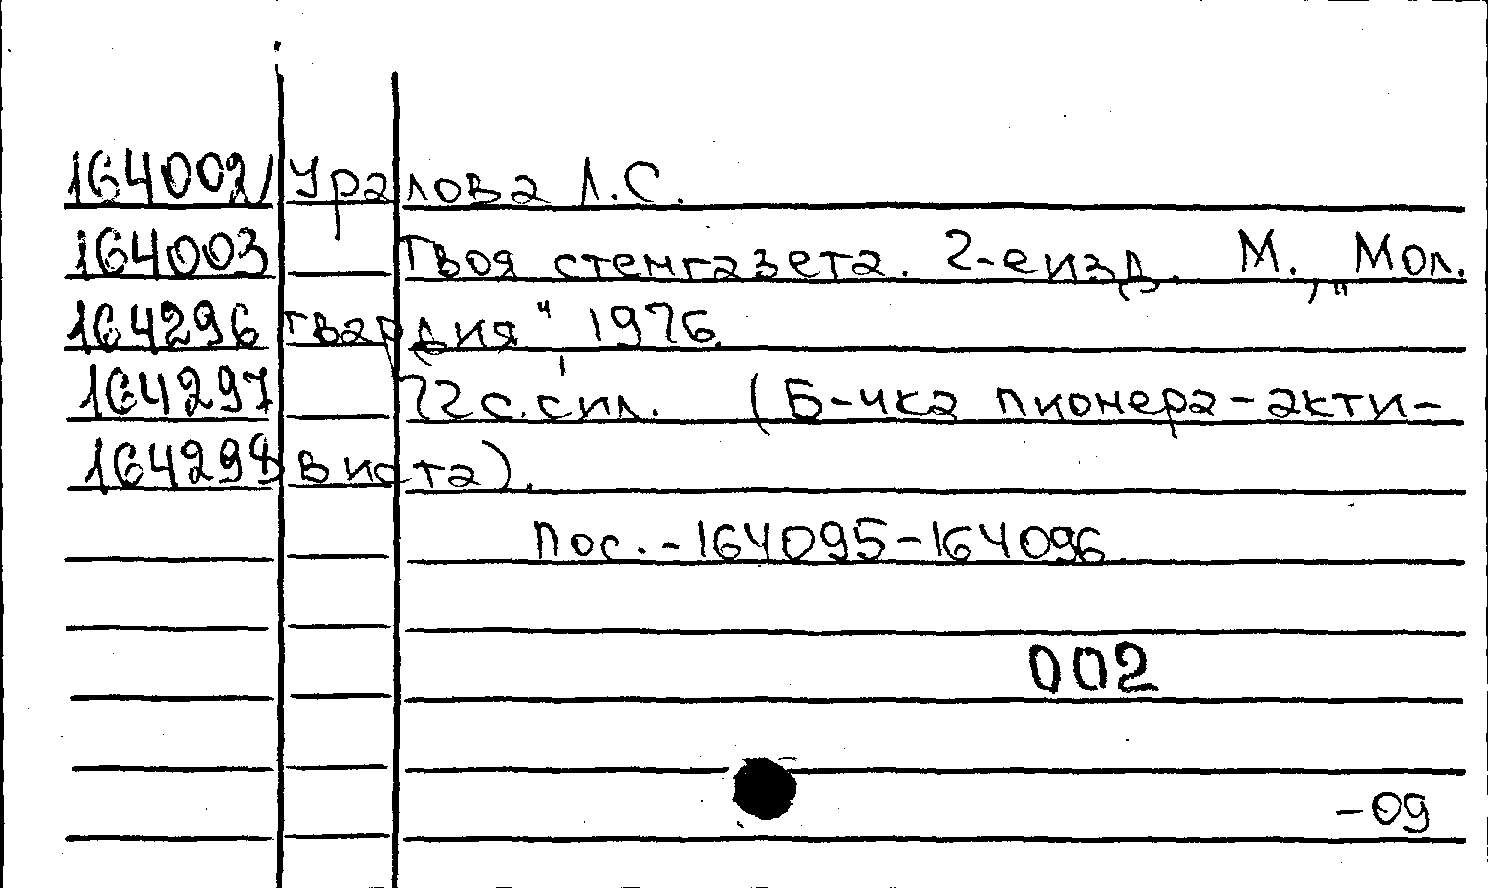 164002/ Уралова Л.С.
164003 Твоя стенгазета. 2-е изд. М., „Мол.
164296 гвардия“ 1976.
164297 72 с. с ил. (Б-чка пионера-акти-
164298 виста).
Пос. - 164095-164096
002
-09